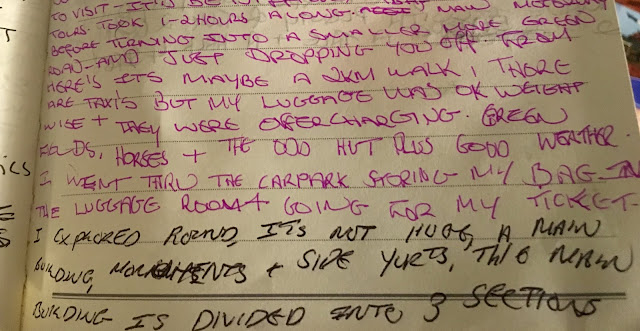 TO VISIT - IT'S BE
TOURS. TOOK 1-2 HOURS ALONG MAIN MOTORWAY
BEFORE TURNING INTO A SMALLER MORE GREEN
ROAD - AND JUST DROPPING YOU OFF. FROM
HERE'S ITS MAYBE A 2KM WALK, THERE
ARE TAXI'S BUT MY LUGGAGE WAS OK WEIGHT
WISE + THEY WERE OFFERCHARGING. GREEN
FIELDS, HORSES + THE ODD HUT PLUS GOOD WEATHER.
I WENT THRU THE CARPARK STORING MY BAG IN
THE LUGGAGE ROOM + GOING FOR MY TICKET.
I EXPLORED ROUND, ITS NOT HUGE, A MAIN
BUILDING, MONUMENTS + SIDE YURTS, THIS MAIN
BUILDING IS DIVIDED INTO 3 SECTIONS